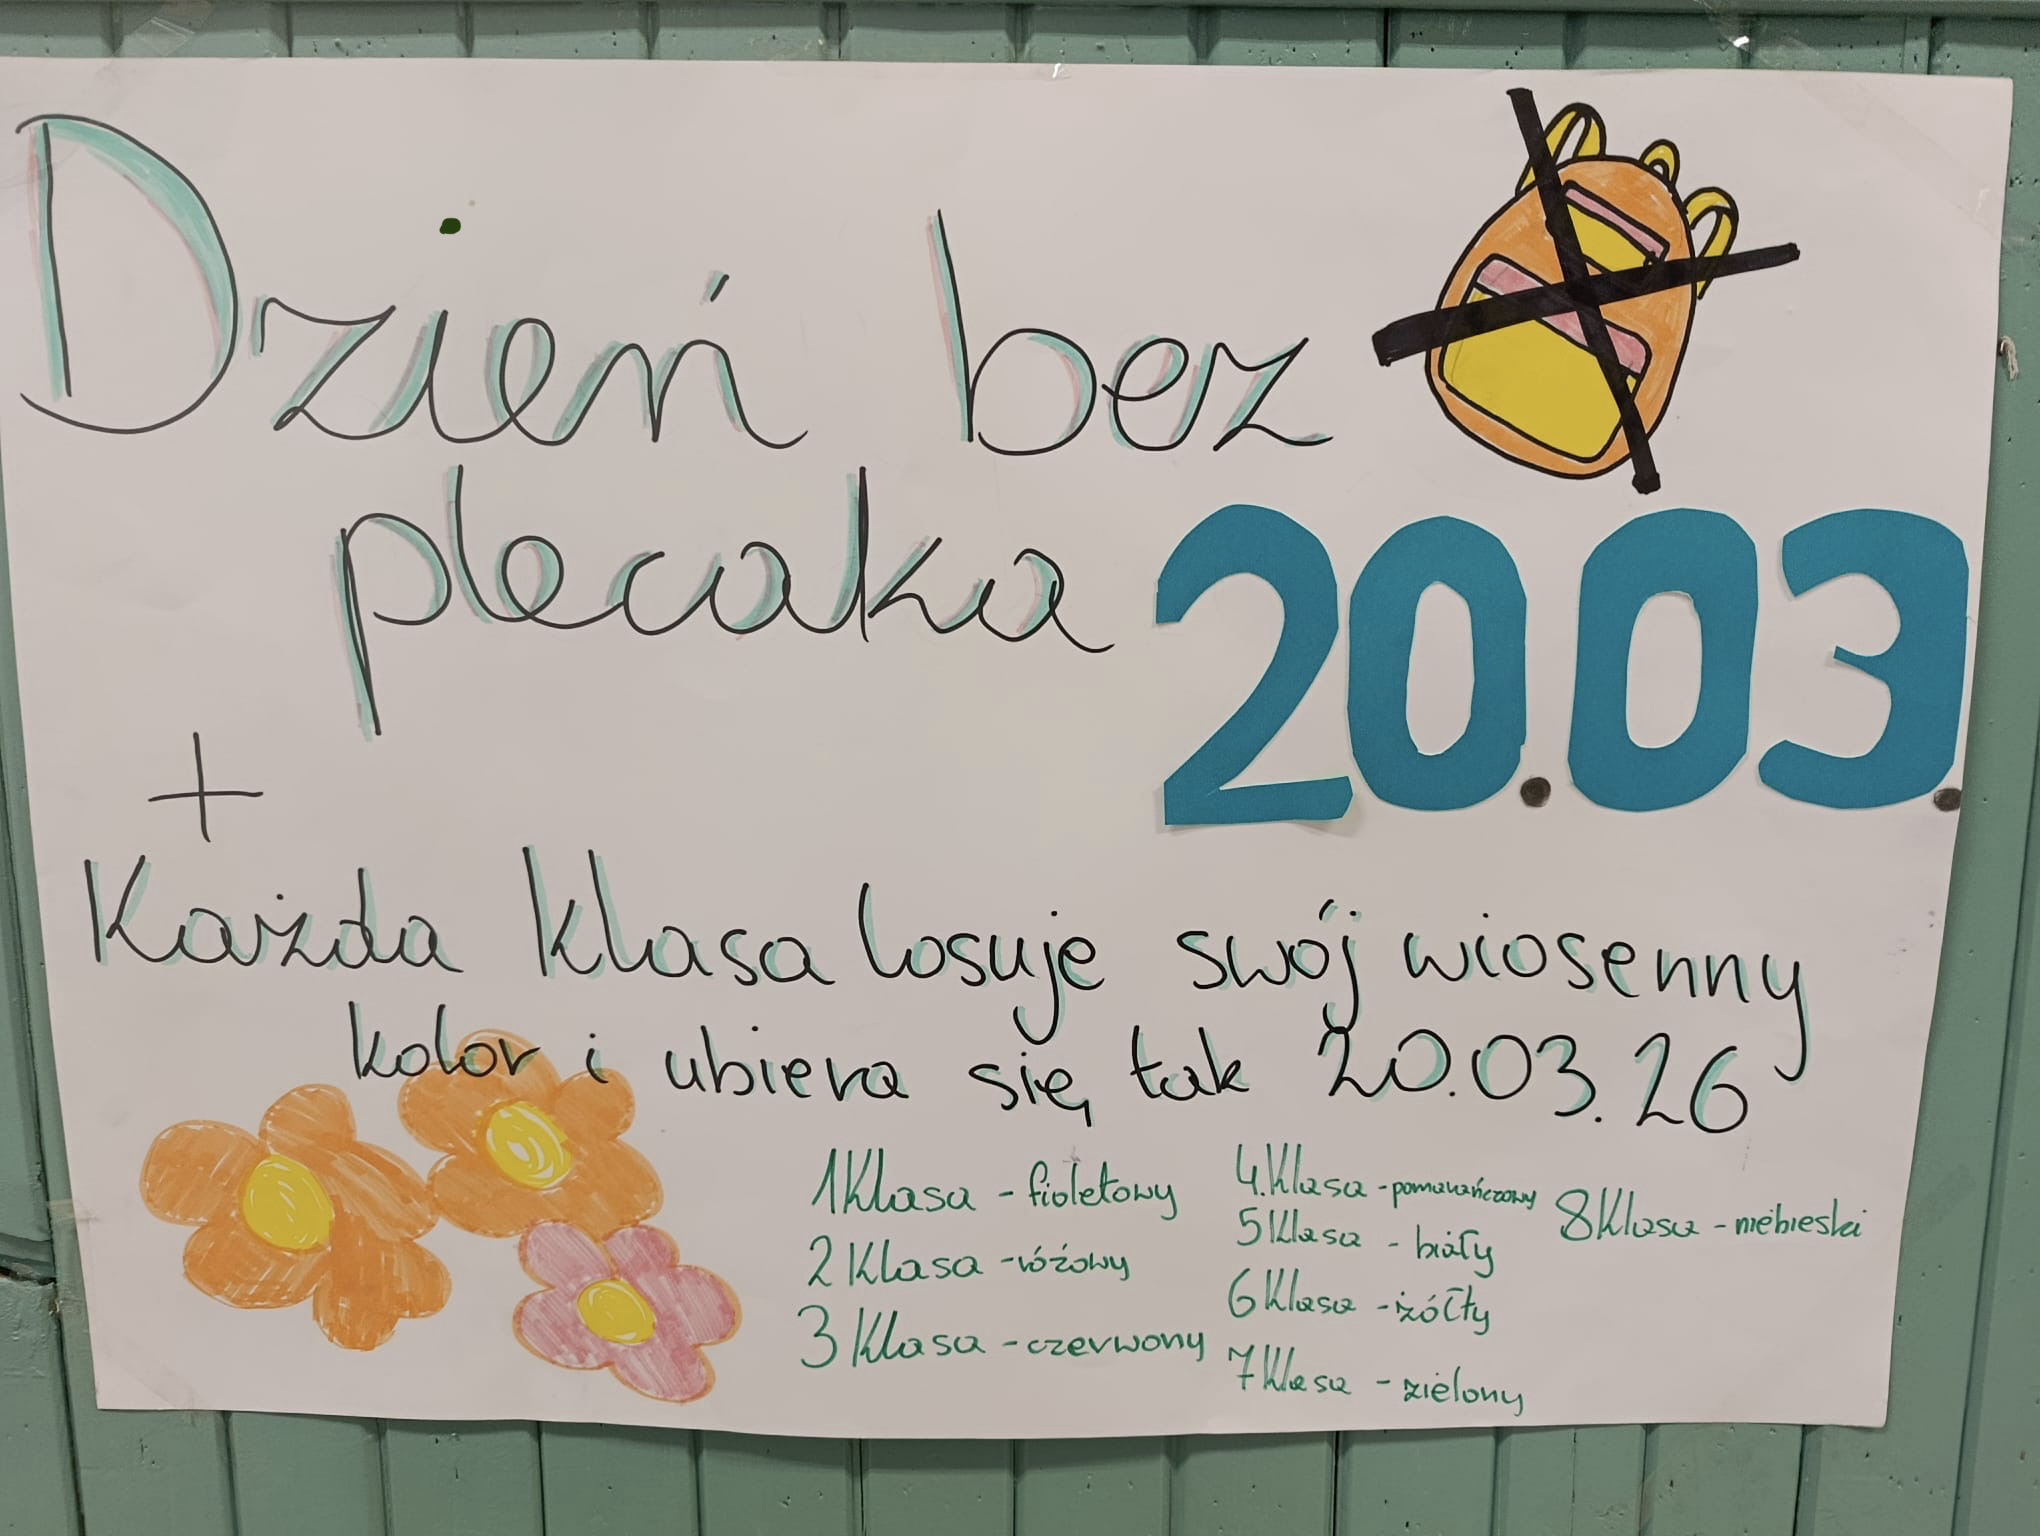 Dzień bez
plecaka 20.03.
+
Każda klasa losuje swój wiosenny
kolor i ubiera się tak 20.03.26
1 Klasa - fioletowy
2 Klasa - różowy
3 Klasa - czerwony
4. Klasa - pomarańczowy
5 Klasa - biały
6 Klasa - żółty
7 Klasa - zielony
8 Klasa - niebieski